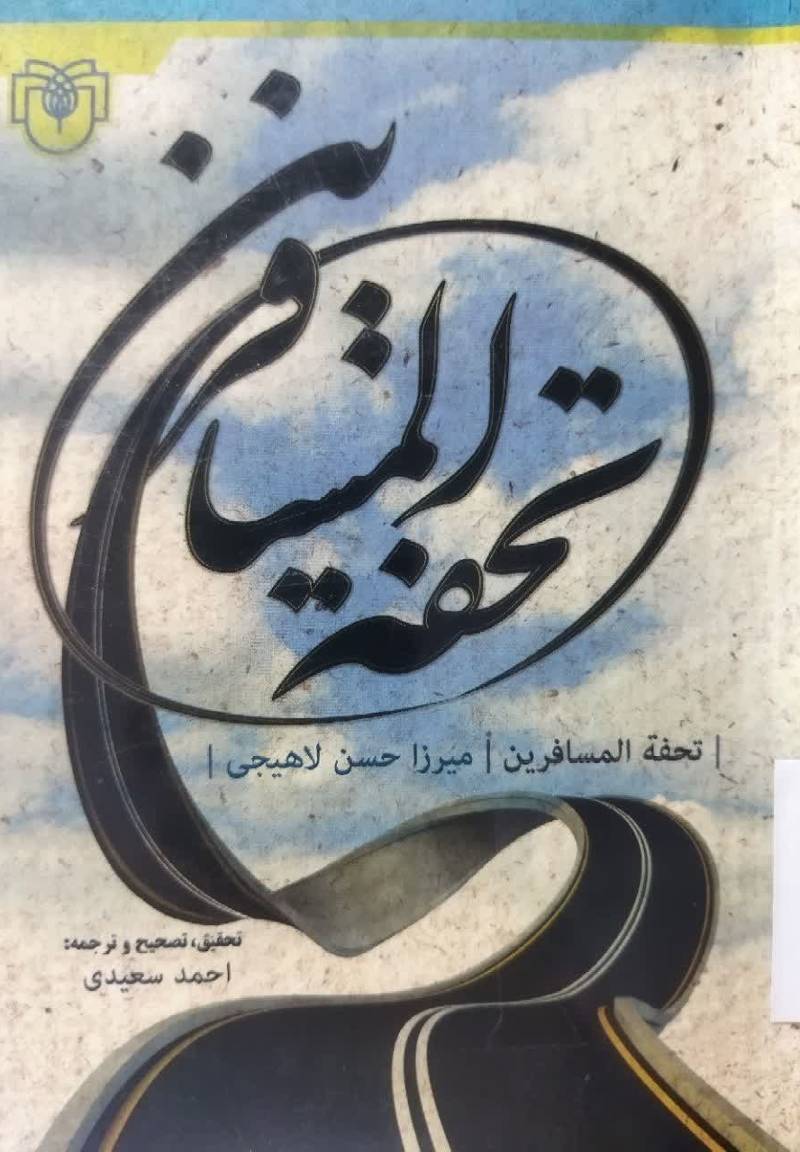 تحفة المسافرین
| تحفة المسافرین | میرزا حسن لاهیجی |
تحقیق، تصحیح و ترجمه:
احمد سعیدی